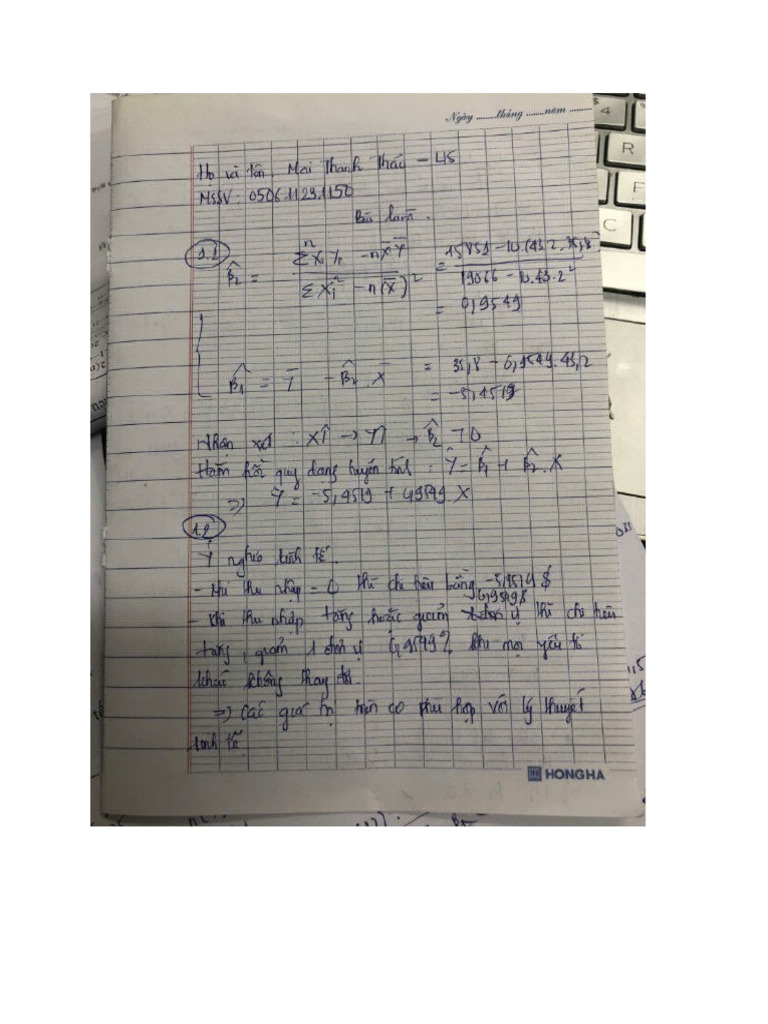 Ngày ........tháng .......năm ........
Họ và tên: Mai Thanh Thảo - 45
MSSV: 050611231150
Bài làm.
1.1
β̂₂ = (Σⁿ XᵢYᵢ - nX̄Ȳ) / (ΣXᵢ² - n(X̄)²) = (15851 - 10.(43,2.35,8)) / (19066 - 10.43.2²)
= 0,9549
β̂₁ = Ȳ - β̂₂.X̄ = 35,8 - 0,9549.43,2
= -5,4519
Nhận xét: X↑ → Y↑ → β̂₂ > 0
Hàm hồi quy dạng tuyến tính: Ŷ = β̂₁ + β̂₂.X
⇒ Ŷ = -5,4519 + 0,9549 X
1.2
Ý nghĩa kinh tế.
- Khi thu nhập = 0 thì chi tiêu bằng $
- Khi thu nhập tăng hoặc giảm thì chi tiêu
tăng, giảm 1 đơn vị 0,9549 khi mọi yếu tố
khác không thay đổi.
⇒ Các giá trị trên có phù hợp với lý thuyết
kinh tế
HONGHA
R
F
C
4
$